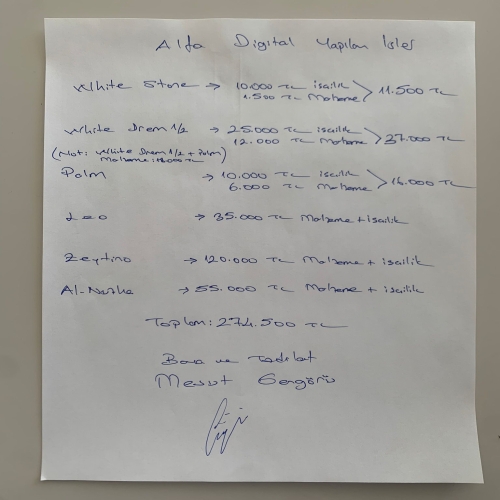 Alfa Digital Yapılan İşler
White Stone → 10.000 TL isçilik
1.500 TL Malzeme > 11.500 TL
White Drem 1/2 → 25.000 TL isçilik
12.000 TL Malzeme > 37.000 TL
(Not: White Drem 1/2 + Palm)
Palm → 10.000 TL isçilik
6.000 TL Malzeme > 16.000 TL
Leo → 35.000 TL Malzeme + isçilik
→ 120.000 TL Malzeme + isçilik
→ 55.000 TL Malzeme + isçilik
Toplam: 274.500 TL
Boya ve Tadilat
Mesut